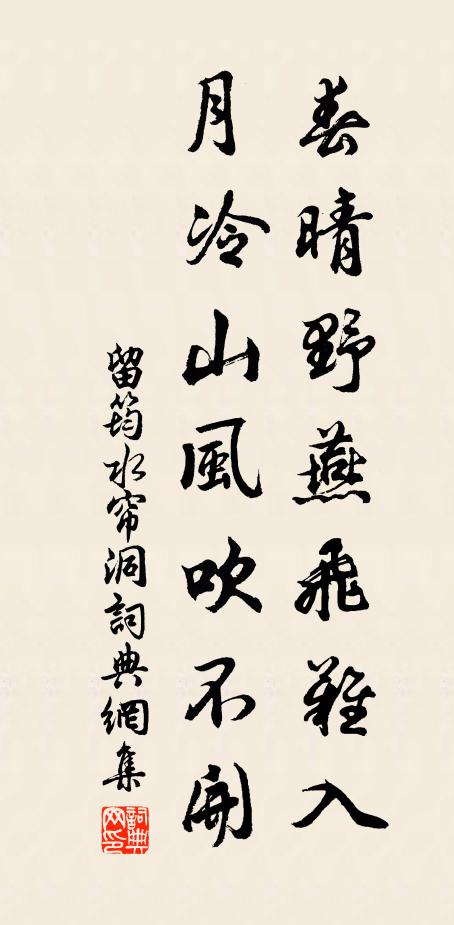 春晴野燕飛難入
月冷山風吹不開
留筠水帘洞詞典網集
詞典網印